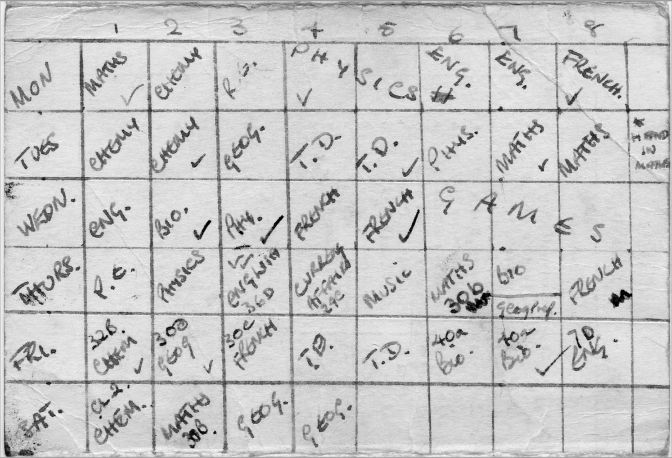 1 2 3 4 5 6 7 8
MON MATHS CHEMY R.E. PHYSICS ENG. ENG. FRENCH.
TUES CHEMY CHEMY GEOG. T.D. T.D. PHYS. MATHS MATHS * HAND IN MATHS
WEDN. ENG. BIO. PHY. FRENCH FRENCH GAMES
THURS. P.E. PHYSICS ENGLISH 36D CURRENT AFFAIRS MUSIC MATHS 30b BIO GEOG Prep. FRENCH
FRI. 32B CHEM 30B GEOG 30C FRENCH T.D. T.D. 40a BIO. 40a BIO. 7D ENG.
SAT. CL2. CHEM. MATHS 30B. GEOG. GEOG.